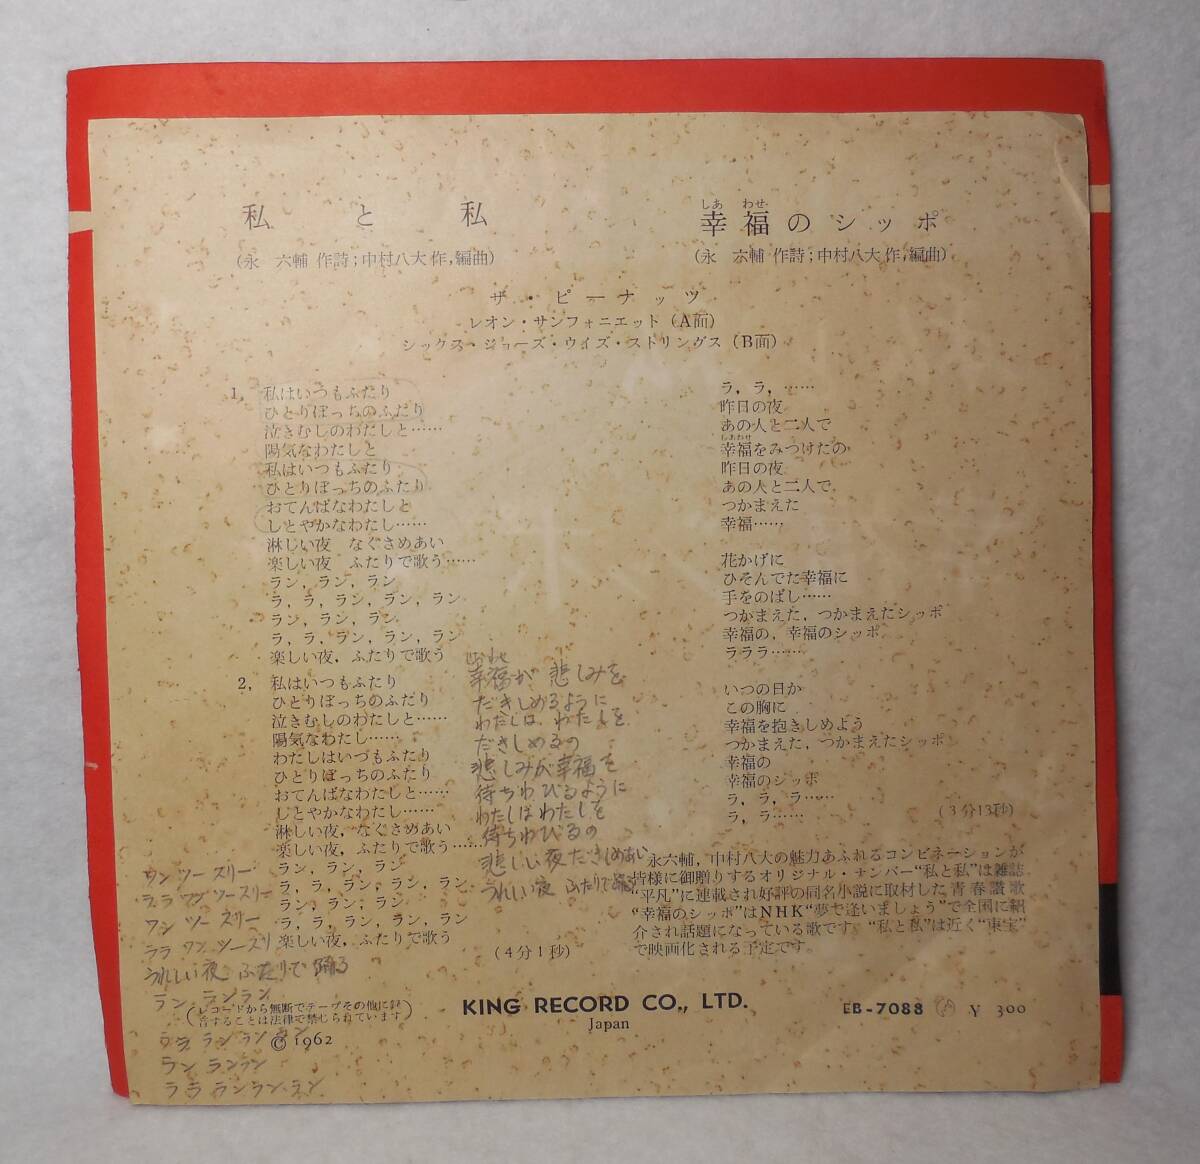 私と私
(永 六輔 作詩；中村八大 作，編曲)
しあ わせ
幸福のシッポ
(永 六輔 作詩；中村八大 作，編曲)
ザ・ピーナッツ
レオン・サンフォニエット（A面）
シックス・ジョーズ・ウイズ・ストリングス（B面）
1， 私はいつもふたり
ひとりぼっちのふたり
泣きむしのわたしと……
陽気なわたしと
私はいつもふたり
ひとりぼっちのふたり
おてんばなわたしと
しとやかなわたし……
淋しい夜 なぐさめあい
楽しい夜 ふたりで歌う……
ラン，ラン，ラン
ラ，ラ，ラン，ラン，ラン
ラン，ラン，ラン
ラ，ラ，ラン，ラン，ラン
楽しい夜，ふたりで歌う
2， 私はいつもふたり
ひとりぼっちのふたり
泣きむしのわたしと……
陽気なわたし……
わたしはいつもふたり
ひとりぼっちのふたり
おてんばなわたしと……
しとやかなわたし……
淋しい夜，なぐさめあい
楽しい夜，ふたりで歌う……
ラン，ラン，ラン
ラ，ラ，ラン，ラン，ラン
ラン，ラン，ラン
ラ，ラ，ラン，ラン，ラン
楽しい夜，ふたりで歌う
(4分1秒)
幸福が 悲しみを
だきしめるように
わたしは わたしを
だきしめるの
悲しみが幸福を
待ちわびるように
わたしはわたしを
待ちわびるの
悲しい夜 だきしめあい
うれしい夜 ふたりで踊る
ワン ツー スリー
ララ ワン ツースリー
ワン ツー スリー
ララ ワン ツースリ
うれしい夜 ふたりで 踊る
ラン ランラン
ララ ラン ラン ラン
ラン ランラン
ララ ランラン・ラン
ラ，ラ，……
昨日の夜
あの人と二人で
しあわせ
幸福をみつけたの
昨日の夜
あの人と二人で
つかまえた
幸福……
花かげに
ひそんでた幸福に
手をのばし……
つかまえた，つかまえたシッポ
幸福の，幸福のシッポ
ラララ……
いつの日か
この胸に
幸福を抱きしめよう
つかまえた，つかまえたシッポ
幸福の
幸福のシッポ
ラ，ラ，ラ……
ラ，ラ……
(3分13秒)
永六輔，中村八大の魅力あふれるコンビネーションが
皆様に御贈りするオリジナル・ナンバー“私と私”は雑誌
“平凡”に連載され好評の同名小説に取材した青春讃歌
“幸福のシッポ”はNHK“夢で逢いましょう”で全国に紹
介され話題になっている歌です。“私と私”は近く“東宝”
で映画化される予定です。
(レコードから無断でテープその他に録
音することは法律で禁じられています)
© 1962
KING RECORD CO., LTD.
Japan
EB-7088 ¥ 300